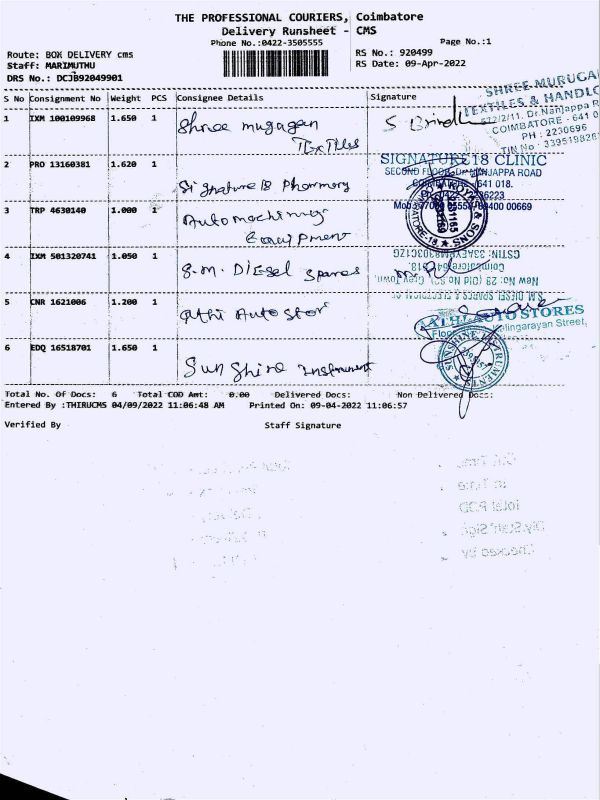 THE PROFESSIONAL COURIERS, Coimbatore
Delivery Runsheet - CMS
Phone No.:0422-3505555
Page No.:1
Route: BOX DELIVERY cms
Staff: MARIMUTHU
DRS No.: DCJB92049901
RS No.: 920499
RS Date: 09-Apr-2022
S No Consignment No Weight PCS Consignee Details Signature
1 IXM 100109968 1.650 1 Shree mugagan Textiles S
SHREE MURUGA
TEXTILES & HANDLO
572/2/11, Dr.Nanjappa R
COIMBATORE - 641 0
PH : 2230696
2 PRO 13160381 1.620 1 Signature 18 Pharmacy
SIGNATURE 18 CLINIC
SECOND FLOOR, Dr. NANJAPPA ROAD
641 018.
3 TRP 4630140 1.000 1 Automachinery Equipment
& SONS
4 IXM 501320741 1.050 1 S.M. Diesel Spares
GSTIN: 33AEYPR3148B1ZG
New No: 29 (Old No
5 CNR 1621006 1.200 1 Athi Auto Stor
AATHI AUTO STORES
Kalingarayan Street,
6 EDQ 16518701 1.650 1 Sun Shine Instrument
SUNSHINE INSTRUMENT
Total No. Of Docs: 6 Total COD Amt: 0.00 Delivered Docs: Non Delivered Docs:
Entered By :THIRUCMS 04/09/2022 11:06:48 AM Printed On: 09-04-2022 11:06:57
Verified By Staff Signature
In Time
Total POD
Dly.Staff Sign
Checked by